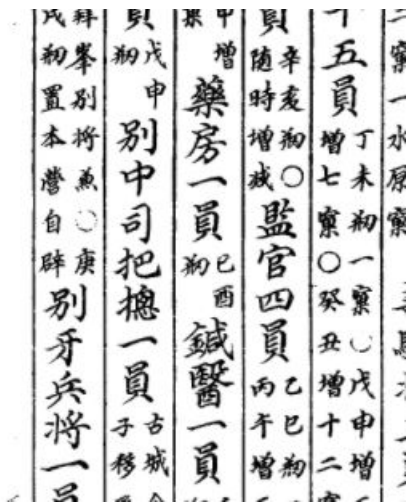 二窠一水原窠
十五員丁未刱一窠○戊申增七窠○癸丑增十二
員辛亥刱○隨時增减監官四員乙巳刱丙午增
甲增藥房一員己酉刱鍼醫一員
員戊申刱別中司把摠一員古城子移
別將兼○庚戌刱置本營自辟別牙兵將一員